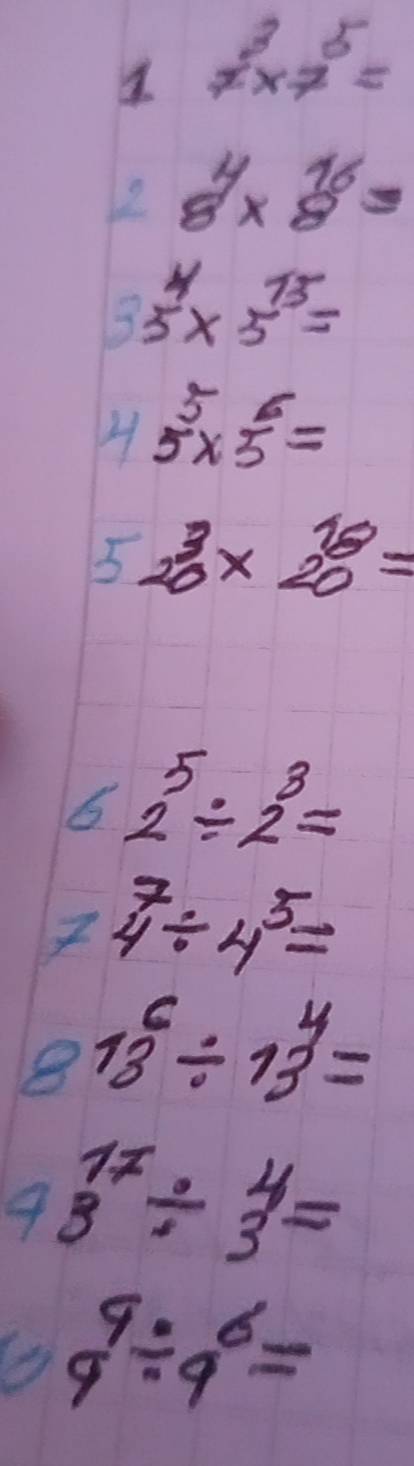 1 7³×7⁵=
2 8⁴×8¹⁶=
3 5⁴×5¹⁵=
4 5⁵×5⁶=
5 20³×20¹⁸=
6 2⁵÷2³=
7 4⁷÷4⁵=
8 13⁶÷13⁴=
9 3¹⁷÷3⁴=
10 9⁹÷9⁶=